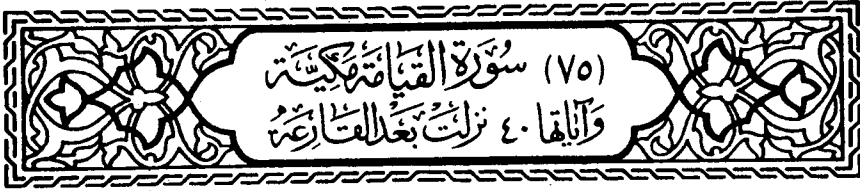 (٧٥) سُورَةُ القِيَامَة مَكِيَّة
وَآيَاتُهَا ٤٠ نَزَلَتْ بَعْدَ القَارِعَةِ